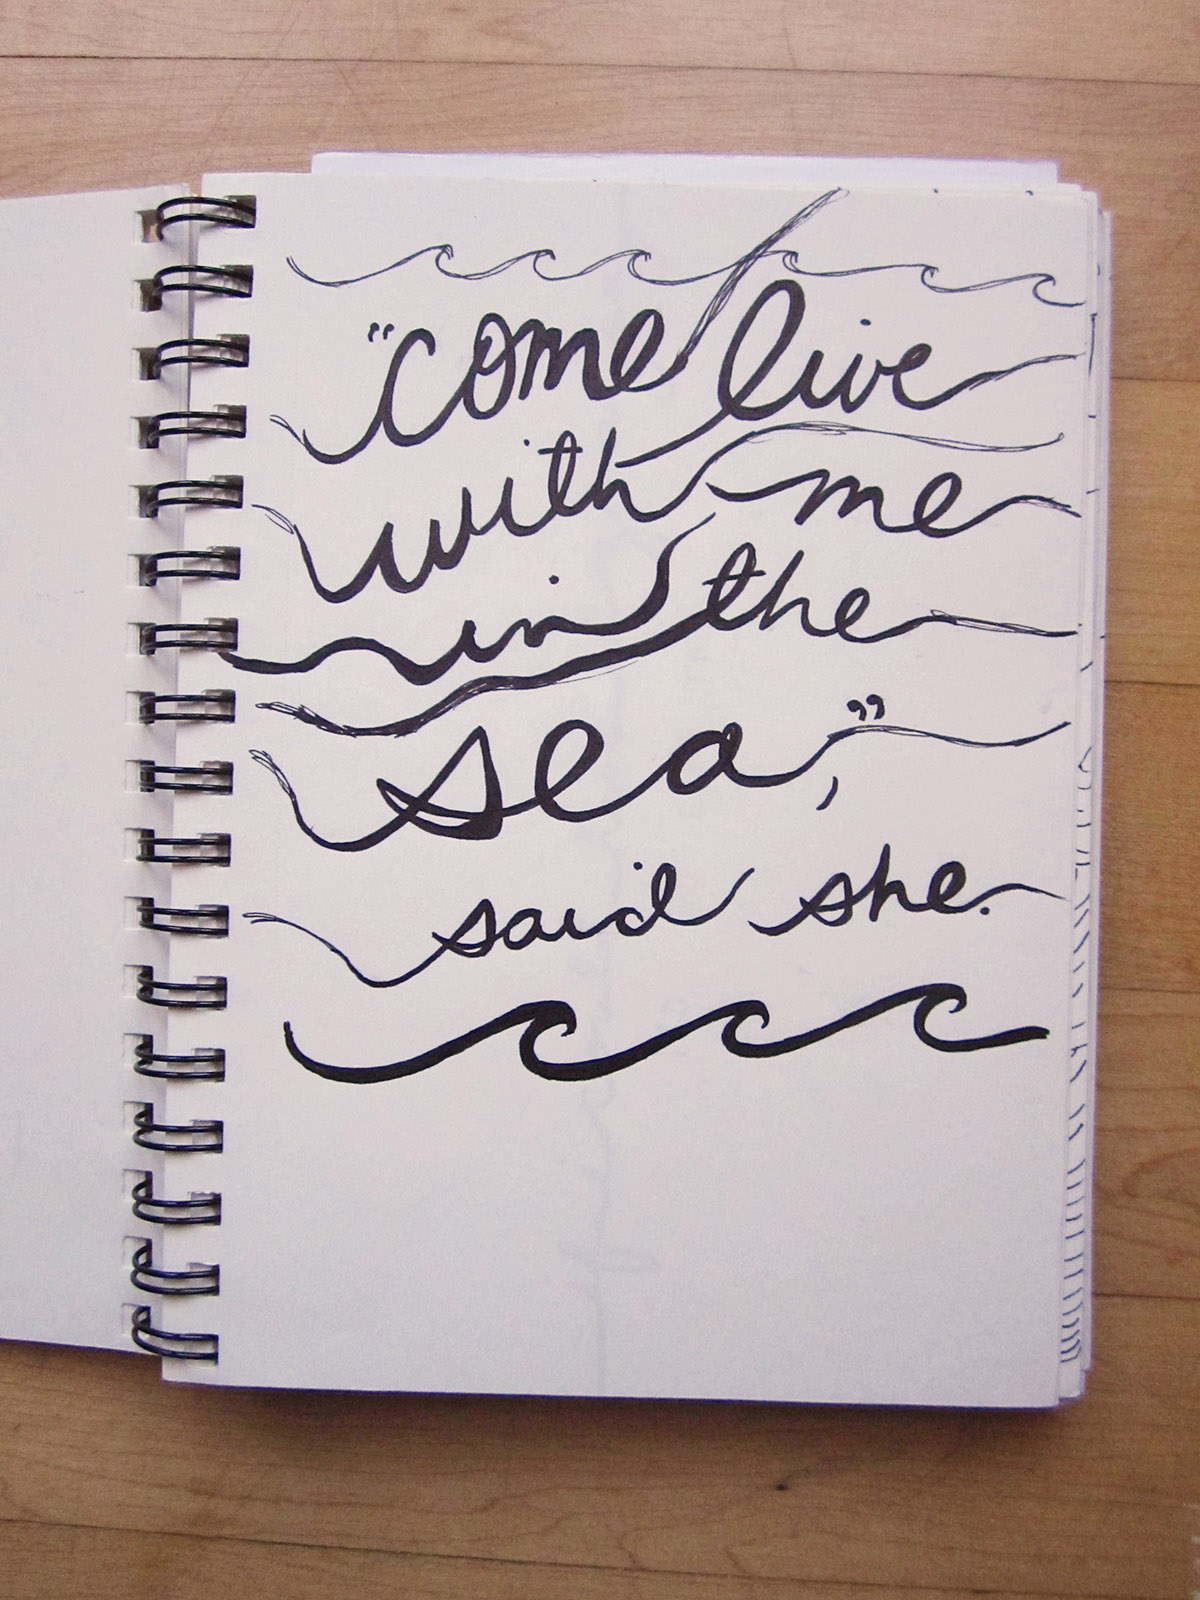 “come live
with me
in the
sea,”
said she.